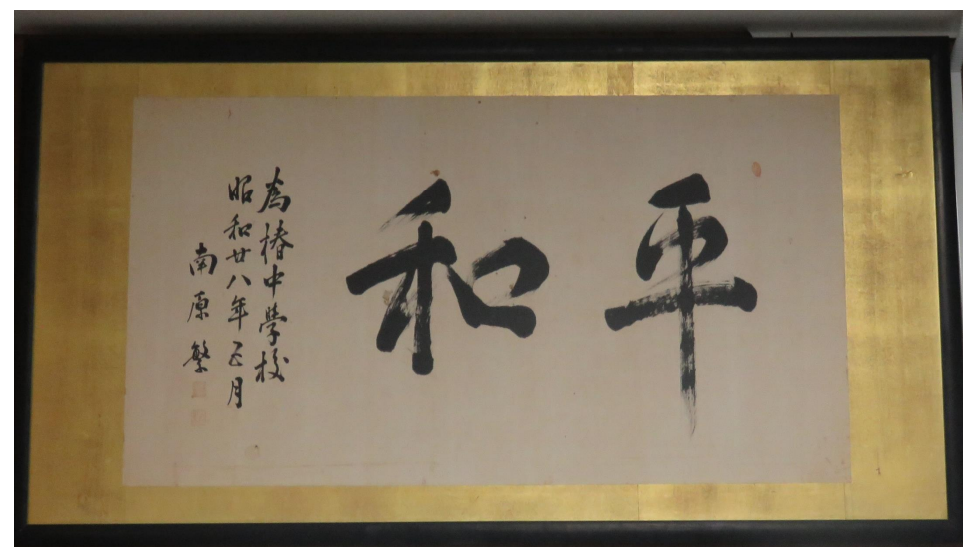 平和
為椿中學校
昭和廿八年五月
南原繁